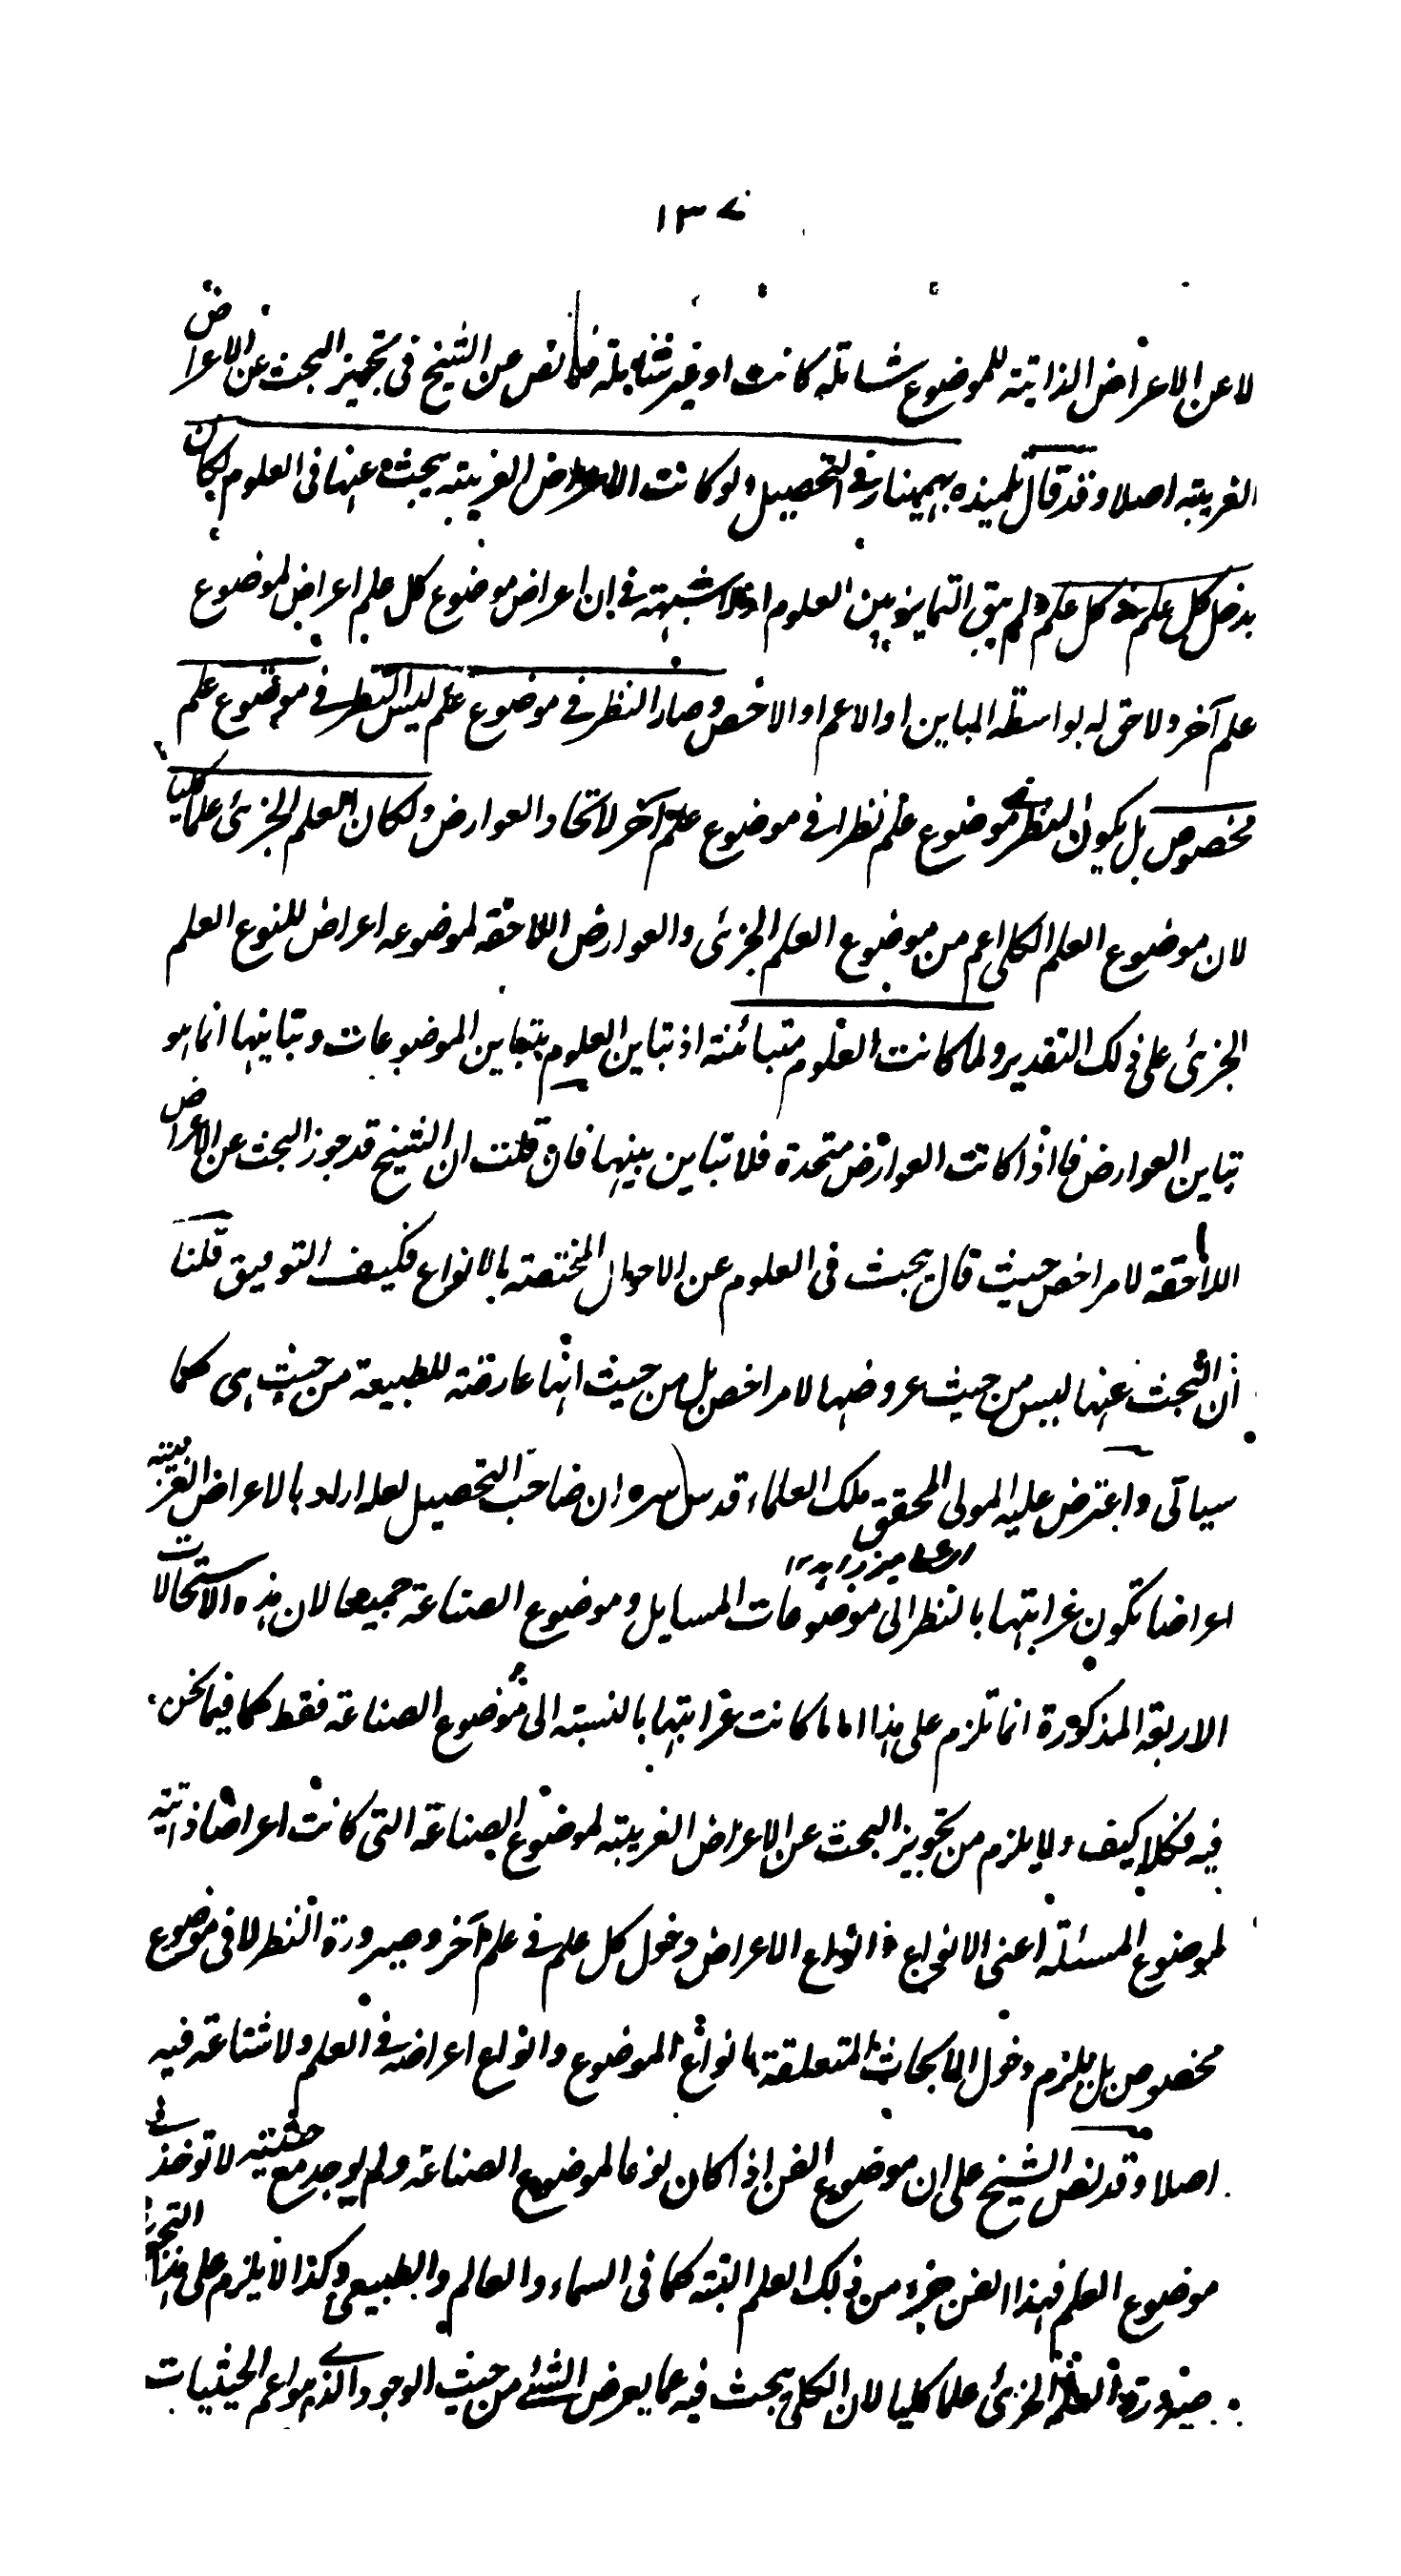 ١٣٧
لا عن الاعراض الذاتية للموضوع شاملة كانت او غير شاملة فما نص عن الشيخ فى تجويز البحث عن الاعراض
الغريبة اصلا وقد قال تلميذه بهمينار فى التحصيل ولو كانت الاعراض الغريبة يبحث عنها فى العلوم لكان
يدخل كل علم فى كل علم ولم يبق التمايز بين العلوم اذ لا شبهة فى ان اعراض موضوع كل علم اعراض لموضوع
علم آخر ولاحق له بواسطة المباين او الاعم او الاخص وصار النظر فى موضوع علم ليس النظر فى موضوع علم
مخصوص بل يكون النظر فى موضوع علم نظرا فى موضوع علم آخر لاتحاد العوارض ولكان العلم الجزئى علما كليا
لان موضوع العلم الكلى اعم من موضوع العلم الجزئى والعوارض اللاحقة لموضوعه اعراض للنوع العلم
الجزئى على ذلك التقدير ولما كانت العلوم متبائنة اذ تباين العلوم بتباين الموضوعات وتباينها انما هو
بتباين العوارض فاذا كانت العوارض متحدة فلا تباين بينها فان قلت ان الشيخ قد جوز البحث عن الاعراض
اللاحقة لامر اخص حيث قال يبحث فى العلوم عن الاحوال المختصة بالانواع فكيف التوفيق قلنا
ان البحث عنها ليس من حيث عروضها لامر اخص بل من حيث انها عارضة للطبيعة من حيث هى كما
سياتى واعترض عليه المولى المحقق ملك العلماء قدس سره ان صاحب التحصيل لعله اراد بالاعراض الغريبة
اعراضا تكون غرابتها بالنظر الى موضوعات المسايل وموضوع الصناعة جميعا لان هذه الاستحالات
الاربعة المذكورة انما تلزم على هذا اما ما كانت غرابتها بالنسبة الى موضوع الصناعة فقط كما فيما نحن
فيه فكلا كيف ولا يلزم من تجويز البحث عن الاعراض الغريبة لموضوع الصناعة التى كانت اعراضا ذاتية
لموضوع المسئلة اعنى الانواع وانواع الاعراض دخول كل علم فى علم آخر وصيرورة النظر لا فى موضوع
مخصوص بل يلزم دخول الابحاث المتعلقة بانواع الموضوع وانواع اعراضه فى العلم ولا شناعة فيه
اصلا وقد نص الشيخ على ان موضوع الفن اذا كان نوعا لموضوع الصناعة ولم يوجد مع حيثية لا توخذ فى
موضوع العلم فهذا الفن جزء من ذلك العلم البتة كما فى السماء والعالم والطبيعى وكذا لا يلزم على هذا
صيرورة العلم الجزئى علما كليا لان الكلى يبحث فيه عما يعرض الشئ من حيث الوجود الذى هو اعم الحيثيات